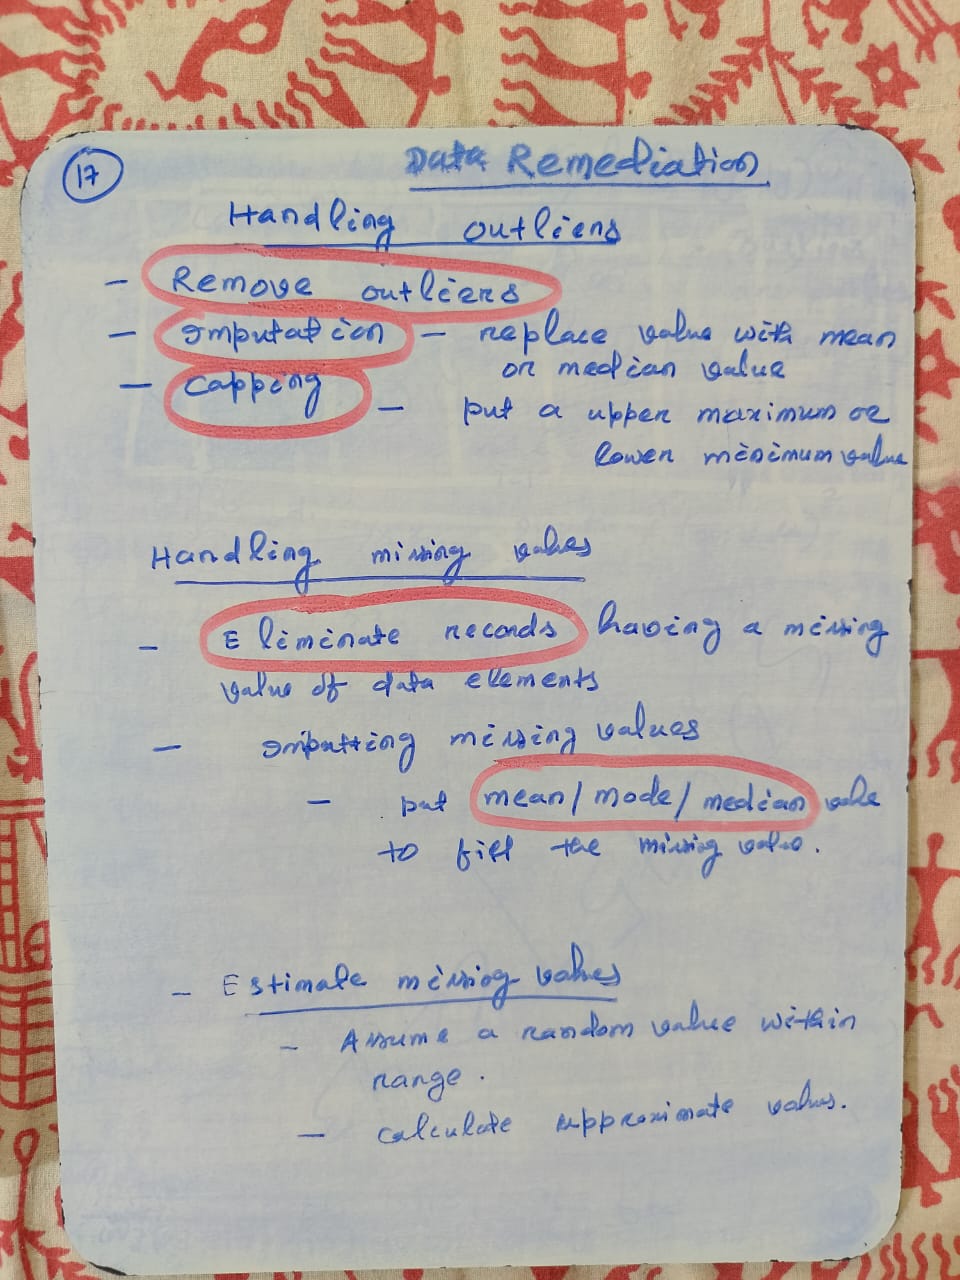 17
Data Remediation
Handling outliers
- Remove outliers
- Imputation - replace value with mean
or median value
- Capping
- put a upper maximum or
lower minimum value
Handling missing values
- Eliminate records having a missing
value of data elements
- Imputting missing values
- put mean/mode/median value
to fill the missing value.
- Estimate missing values
- Assume a random value within
range.
- calculate approximate values.